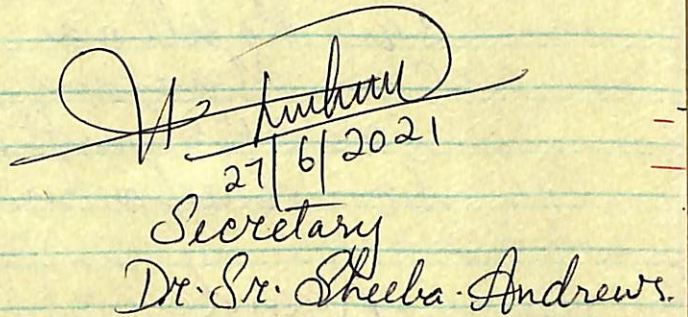 27/6/2021
Secretary
Dr. Sr. Sheeba. Andrews.